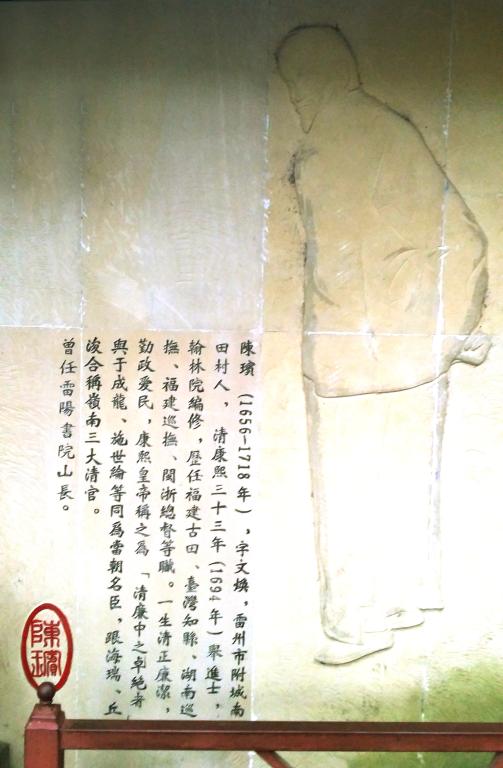 陳璸（1656-1718年），字文煥，雷州市附城南
田村人，清康熙三十三年（1694年）舉進士，
翰林院編修，歷任福建古田、臺灣知縣、湖南巡
撫、福建巡撫、閩浙總督等職。一生清正廉潔，
勤政爱民，康熙皇帝稱之爲「清廉中之卓絶者
與于成龍、施世綸等同爲當朝名臣，跟海瑞、丘
浚合稱嶺南三大清官。
曾任雷陽書院山長。
陳璸